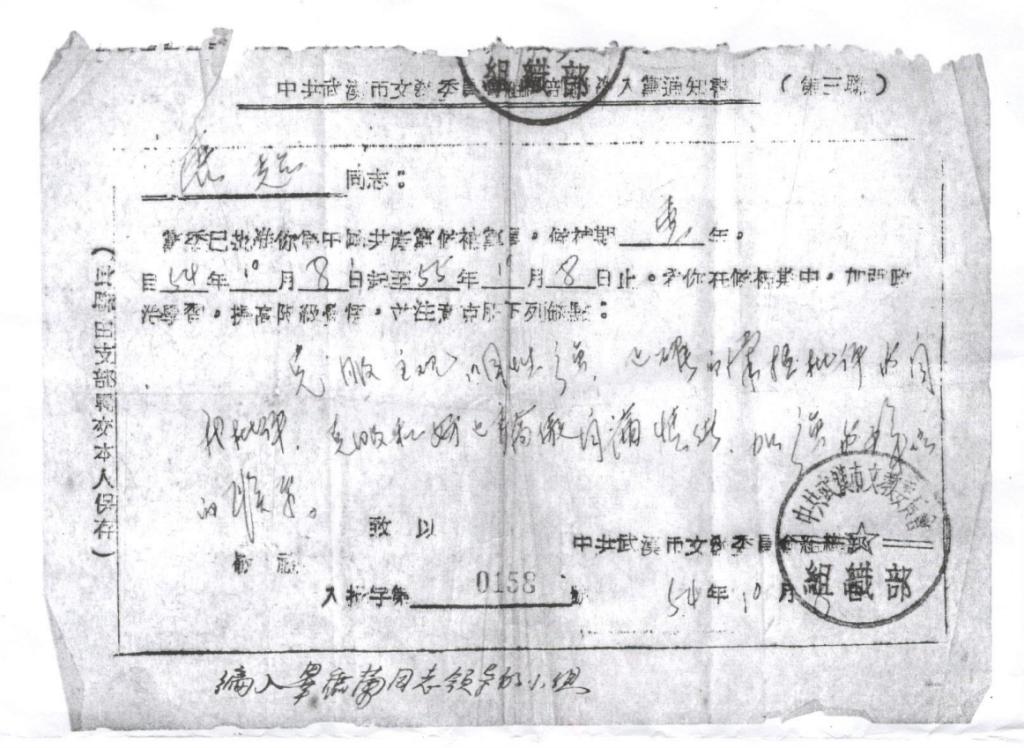 中共武漢市文教委員會組織部 入黨通知書 (第三聯)
超 同志：
黨委已批准你為中國共產黨候補黨員。候補期 壹 年。
自 54 年 10 月 8 日起至 55 年 10 月 8 日止。希你在候補期中，加強政
治學習，提高階級覺悟，並注意克服下列缺點：
克服主觀 性強，正確的掌握批評與自
我批評，克服 驕傲自滿情緒，加強
的 。
致以
敬禮
中共武漢市文教委員會組織部
入批字第 0158 號
54 年 10 月 8
編入 同志領導的小組
(此聯由支部轉交本人保存)
組織部
中共武漢市文教委員會
組織部